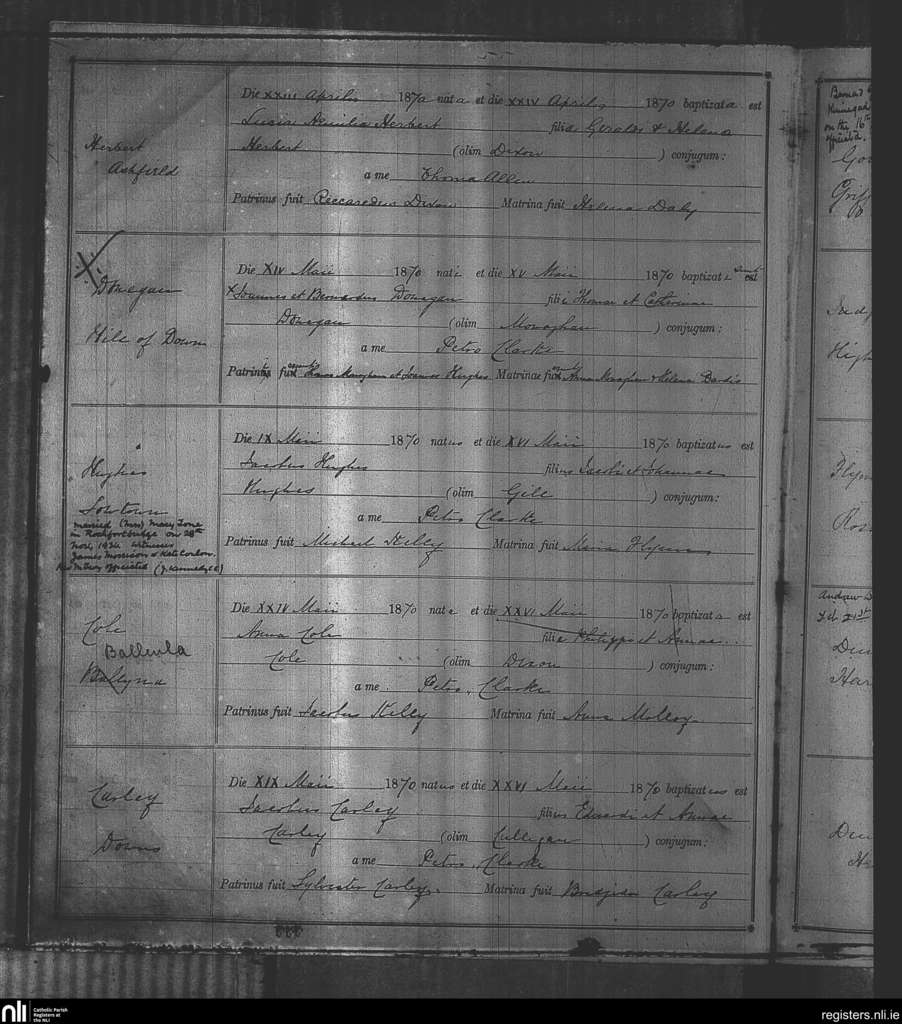 Herbert
Ashfield
Die XXIII Aprilis 1870 nata et die XXIV Aprilis 1870 baptizata est
Lucia Herbert filia Geraldi & Helena
Herbert (olim Dixon) conjugum:
a me Thoma Allen
Patrinus fuit Reccaredus Dixon Matrina fuit Helena Daly
X
Donegan
Hill of Down
Die XIV Maii 1870 nati et die XV Maii 1870 baptizati sunt
X Joannes et Bernardus Donegan filii Thomae et Catherinae
Donegan (olim Monaghan) conjugum:
a me Petro Clarke
Patrini fuerunt Monaghan et Joannes Hughes Matrinae fuerunt Anna Monaghan & Helena
Hughes
Lowtown
married (Mrs) Mary
in Rochfortbridge on 28th
Nov, 1934 witnesses
James Morrison & Kate Conlon.
officiated (J. Kennedy CC)
Die IX Maii 1870 natus et die XVI Maii 1870 baptizatus est
Jacobus Hughes filius Jacobi et Johannae
Hughes (olim Gill) conjugum:
a me Petro Clarke
Patrinus fuit Michael Kelly Matrina fuit Maria Flynn
Cole
Ballinla
Ballyna
Die XXIV Maii 1870 nata et die XXVI Maii 1870 baptizata est
Anna Cole filia Philippi et Annae
Cole (olim Dixon) conjugum:
a me Petro Clarke
Patrinus fuit Jacobus Kelly Matrina fuit Anna Molloy
Carley
Downs
Die XIX Maii 1870 natus et die XXVI Maii 1870 baptizatus est
Jacobus Carley filius Edwardi et Annae
Carley (olim Culligan) conjugum:
a me Petro Clarke
Patrinus fuit Sylvester Carley Matrina fuit Carley
on the 16th
High
Andrew
Feb 21st
nli Catholic Parish
Registers at
the NLI
registers.nli.ie